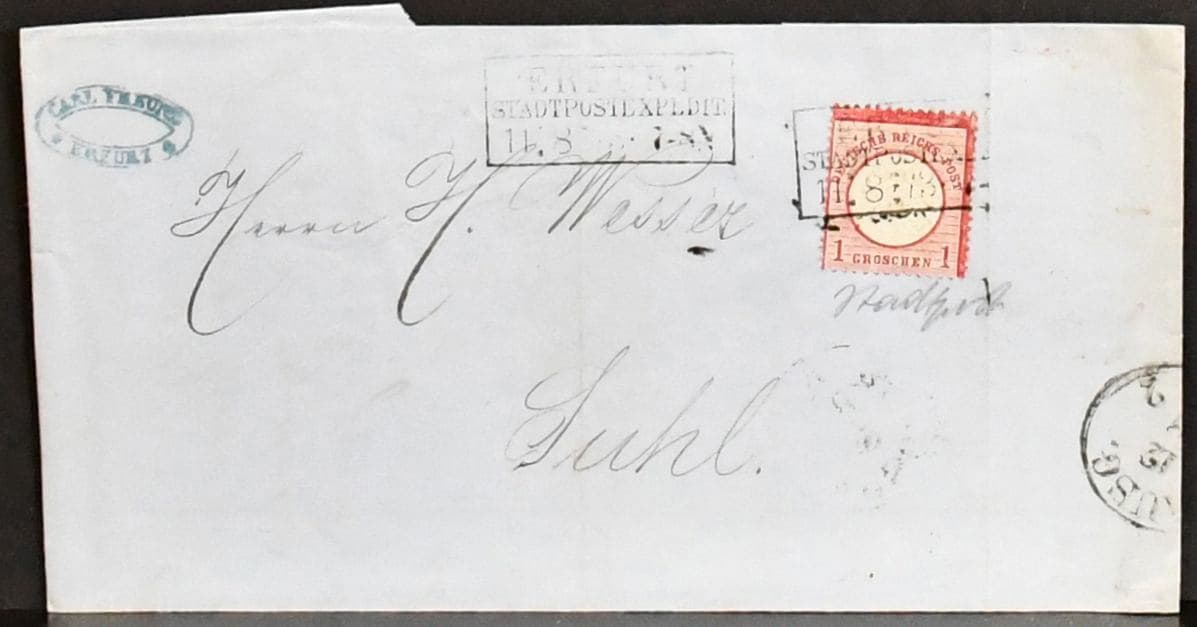 CARL
ERFURT
ERFURT
STADTPOSTEXPEDIT.
11. 8 7-8
STADTPOST
11. 8
DEUTSCHE REICHS-POST
1 GROSCHEN 1
Herrn H. Messer
Stadtpost
Suhl.
AUSG
12
2